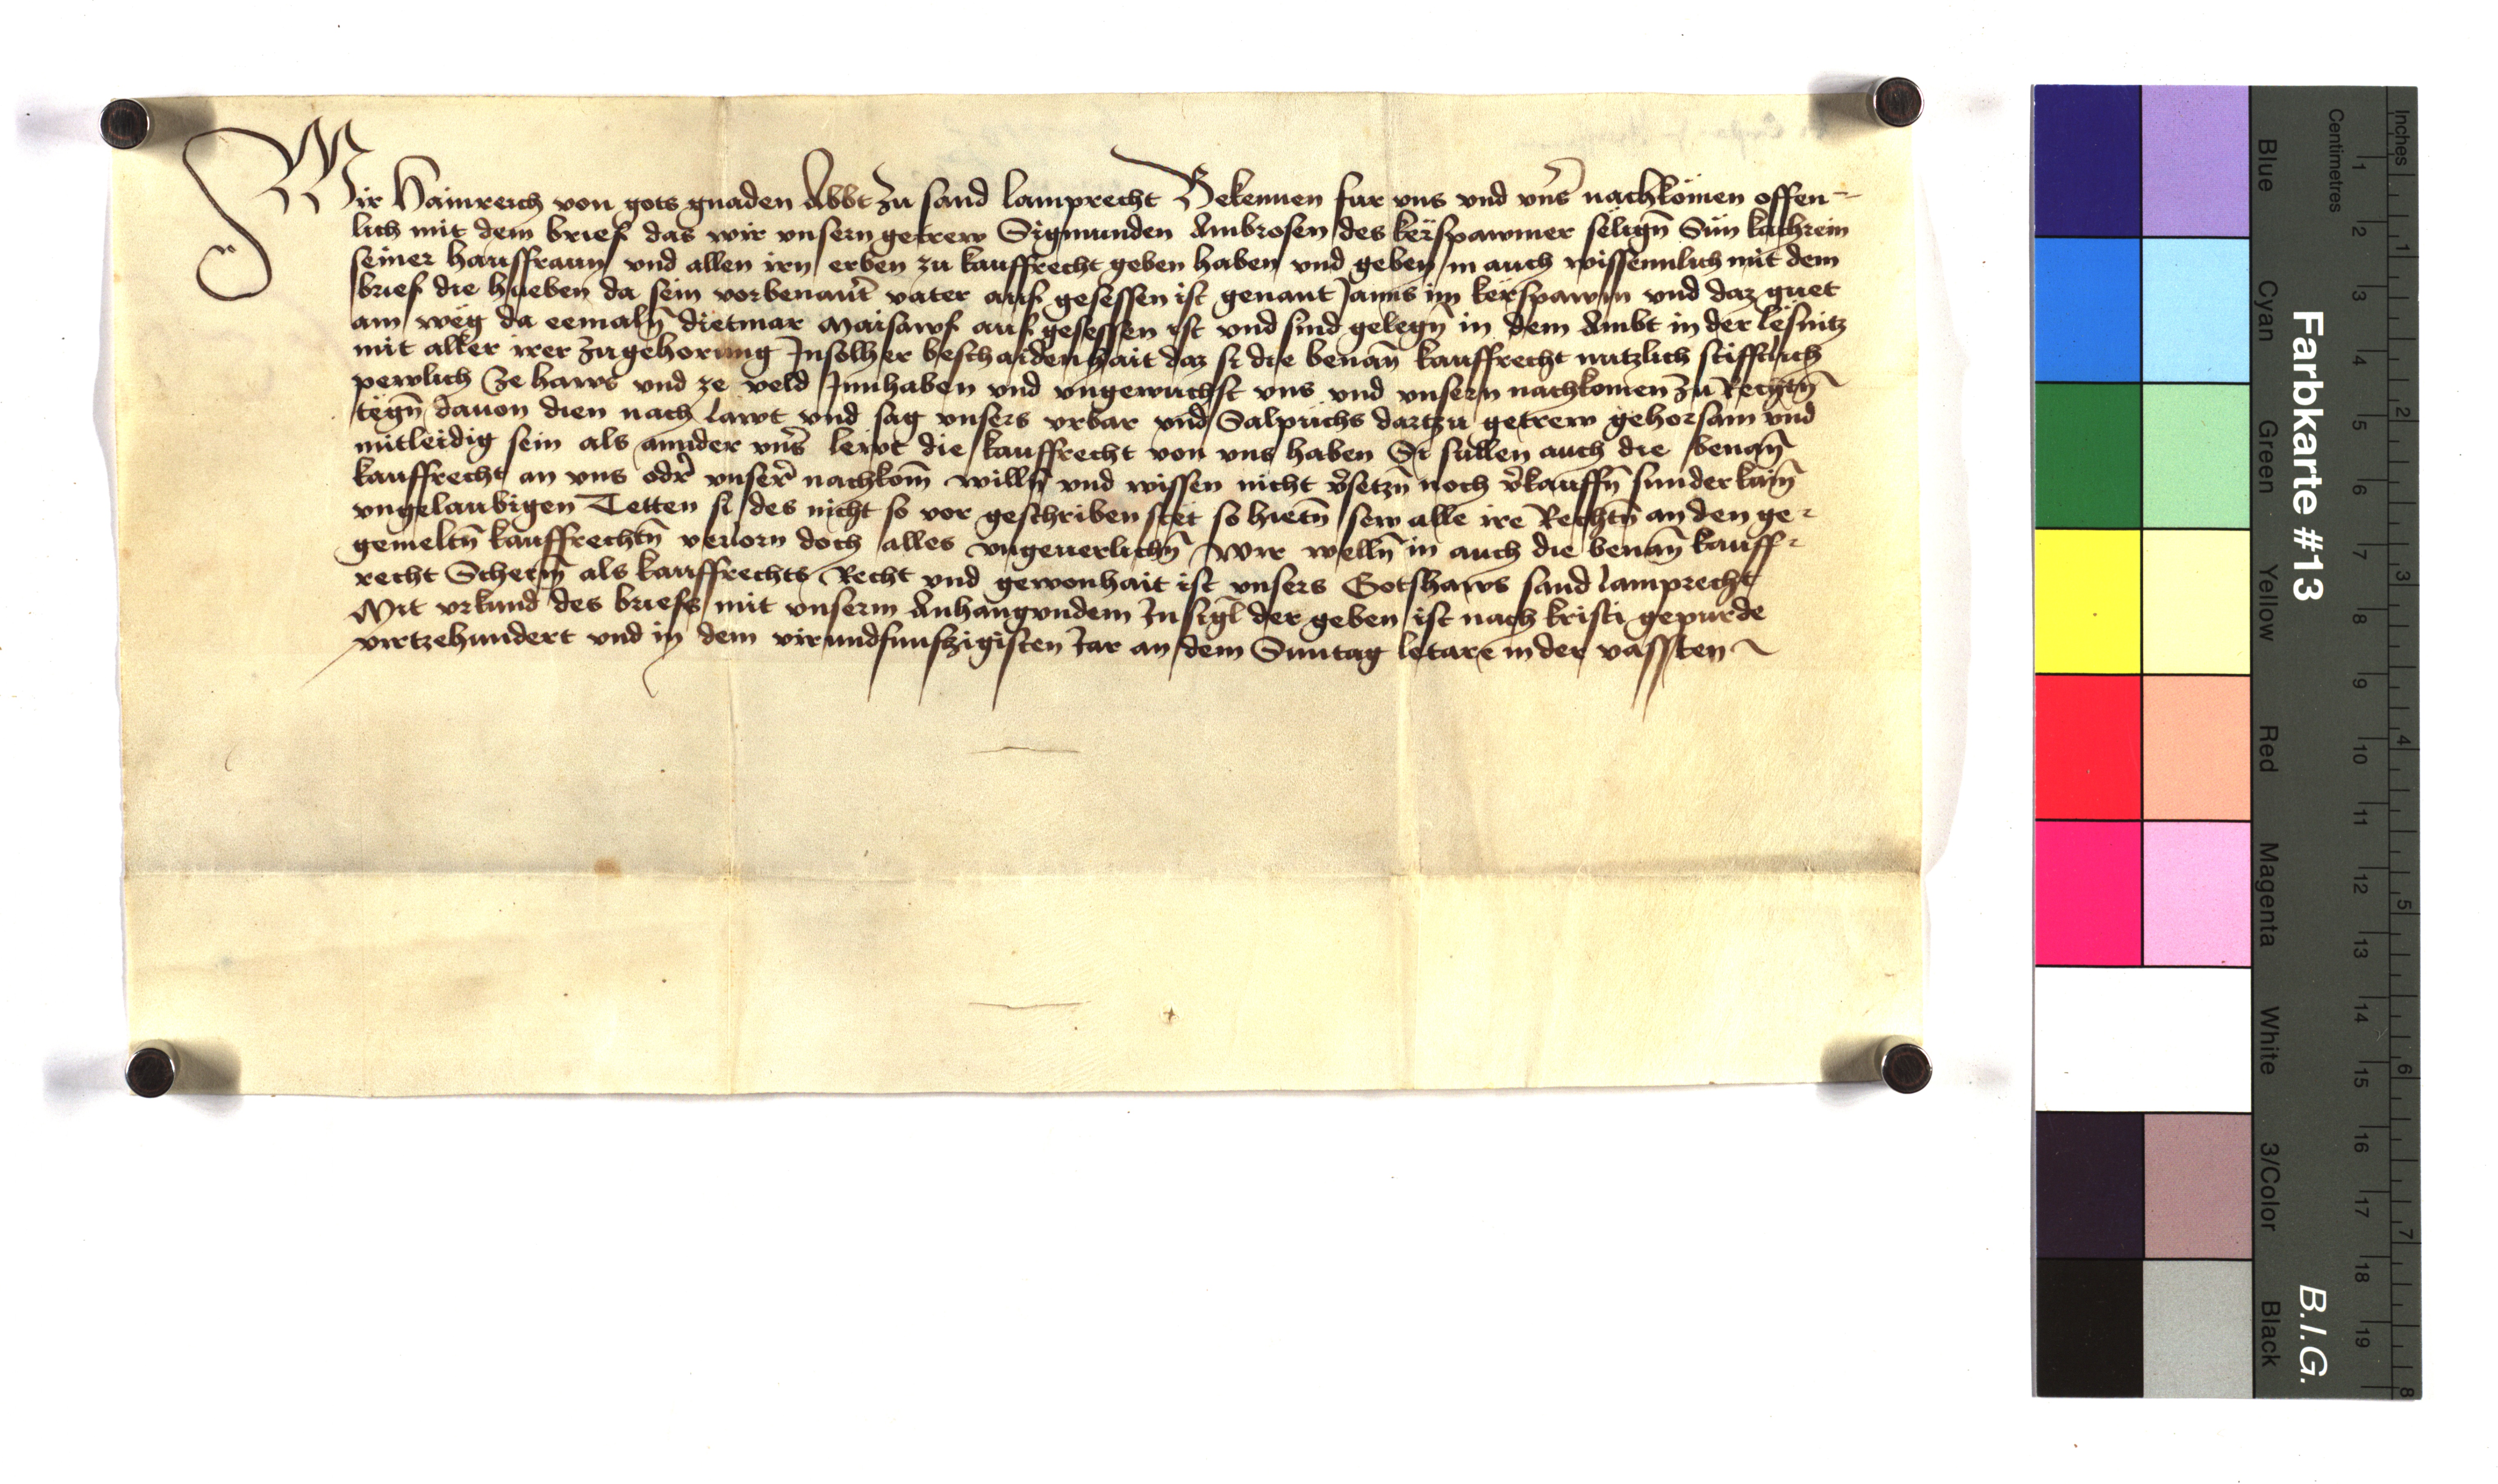 Wir Hainreich von gots gnaden Abbt zu sand lamprecht Bekennen fur vns vnd vns̄ nachkömen offen-
lich mit dem brief das wir vnsern getrew Sigmunden Ambrosen des kerspawmer seligñ Sün kathrein
seiner hausfraun vnd allen irn erben zu kauffrecht geben haben vnd geben in auch wissenlich mit dem
brief die hueben da sein vorbenant vater auf gesessen ist genant Janns im kerspawm vnd daz guet
am weg da eemalñ dietmar Maisawf auf gesessen ist vnd sind gelegñ in dem Ambt in der lesnitz
mit aller irer zugehorung Jnsolher beschaidenhait daz si die benañ kauffrecht nutzlich stifftlich
pewlich ze haws vnd ze veld Jnnhaben vnd vngewuchst vns vnd vnsern nachkomen zu Rechtñ
tegñ dauon dien nach lawt vnd sag vnsers vrbar vnd Salpuchs dartzu getrew gehorsam vnd
mitleidig sein als annder vns̄ lewt die kauffrecht von vns haben Si sullen auch die benañ
kauffrecht an vns odr̄ vnser̄ nachkom̄ willñ vnd wissen nicht v̄setzñ noch v̄kauffñ sunderkaim̄
vngelaubigen Tetten si des nicht so vor geschriben stet so hietñ sew alle ire Rechtñ an den ge-
gemeltñ kauffrechtñ verlorn doch alles vngeuerlichñ Wir wellñ in auch die benañ kauff-
recht Scherm̄ als kauffrechts Recht vnd gewonhait ist vnsers Gotshaws sand lamprecht
Mit vrkund des briefs mit vnserm Anhangundem Jnsigl der geben ist nach kristi gepurde
virtzehundert vnd in dem virundfunfzigisten Jar an dem Suntag letare in der vassten
Farbkarte #13
B.I.G.
Inches
Centimetres
1 2 3 4 5 6 7 8
1 2 3 4 5 6 7 8 9 10 11 12 13 14 15 16 17 18 19
Blue
Cyan
Green
Yellow
Red
Magenta
White
3/Color
Black